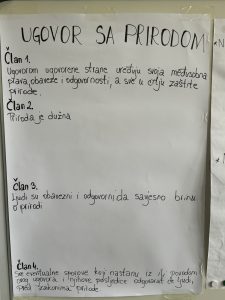 UGOVOR SA PRIRODOM
Član 1.
Ugovorom ugovorene strane uređuju svoja međusobna
prava, obaveze i odgovornosti, a sve u cilju zaštite
prirode.
Član 2.
Priroda je dužna
Član 3.
Ljudi su obavezni i odgovorni da savjesno brinu
o prirodi
Član 4.
Sve eventualne sporove koji nastanu iz ili povodom
ovog ugovora i njihove posljedice odgovarat će ljudi,
pred zakonima prirode.